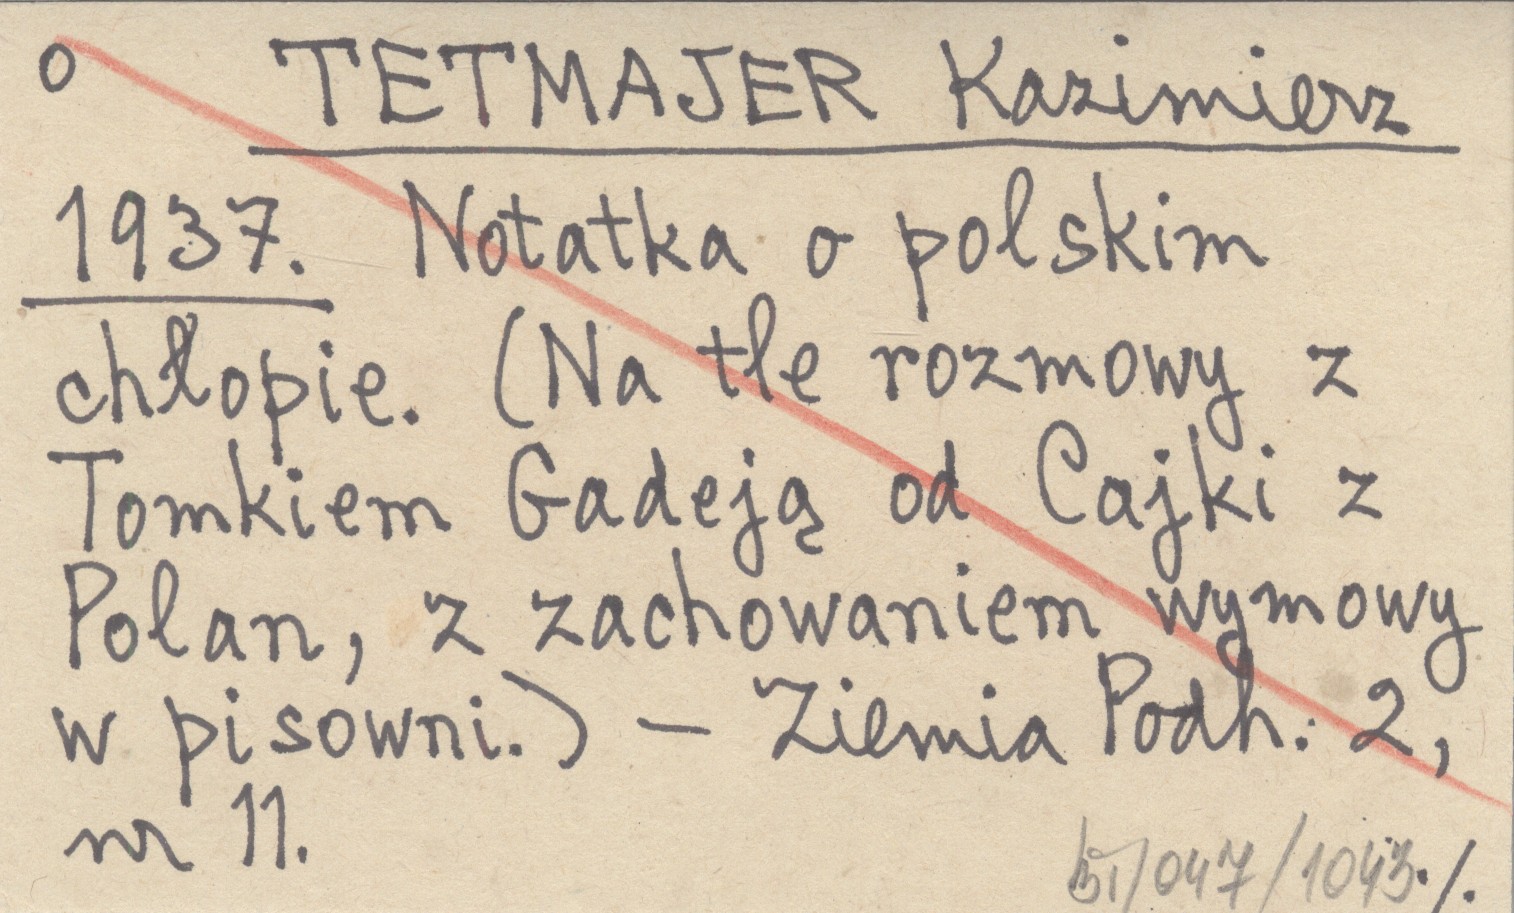 o TETMAJER Kazimierz
1937. Notatka o polskim
chłopie. (Na tle rozmowy z
Tomkiem Gadeją od Cajki z
Polan, z zachowaniem wymowy
w pisowni.) — Ziemia Podh. 2,
nr 11.
/047/1043./.